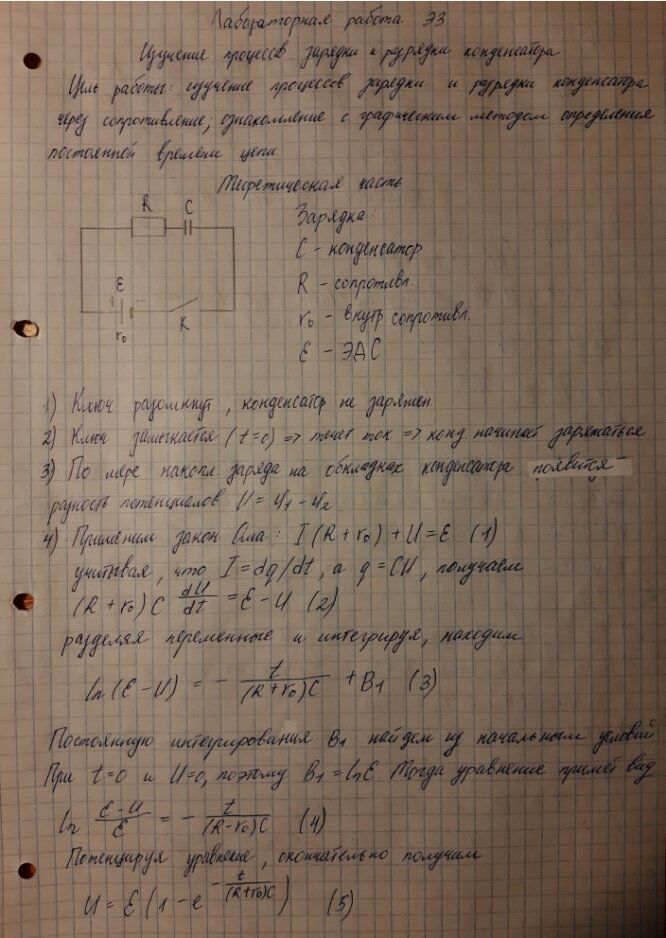 Лабораторная работа Э3
Изучение процессов зарядки и разрядки конденсатора
Цель работы: изучение процессов зарядки и разрядки конденсатора
через сопротивление; ознакомление с графическим методом определения
постоянной времени цепи
Теоретическая часть
R C
ℰ
r₀ K
Зарядка:
C – конденсатор
R – сопротивл.
r₀ – внутр сопротивл.
ℰ – ЭДС
1) Ключ разомкнут, конденсатор не заряжен
2) Ключ замыкается (t=0) => течет ток => конд. начинает заряжаться
3) По мере накопл. заряда на обкладках конденсатора появится
разность потенциалов U = φ₁ – φ₂
4) Применим закон Ома: I(R + r₀) + U = ℰ (1)
учитывая, что I = dq/dt, а q = CU, получаем
(R + r₀)C dU/dt = ℰ – U (2)
разделяя переменные и интегрируя, находим
ln(ℰ – U) = – t/(R+r₀)C + B₁ (3)
Постоянную интегрирования B₁ найдем из начальным условий
При t=0 и U=0, поэтому B₁ = lnℰ. Тогда уравнение примет вид
ln ℰ–U/ℰ = – t/(R–r₀)C (4)
Потенцируя уравнение, окончательно получим
U = ℰ(1 – e^(–t/(R+r₀)C)) (5)